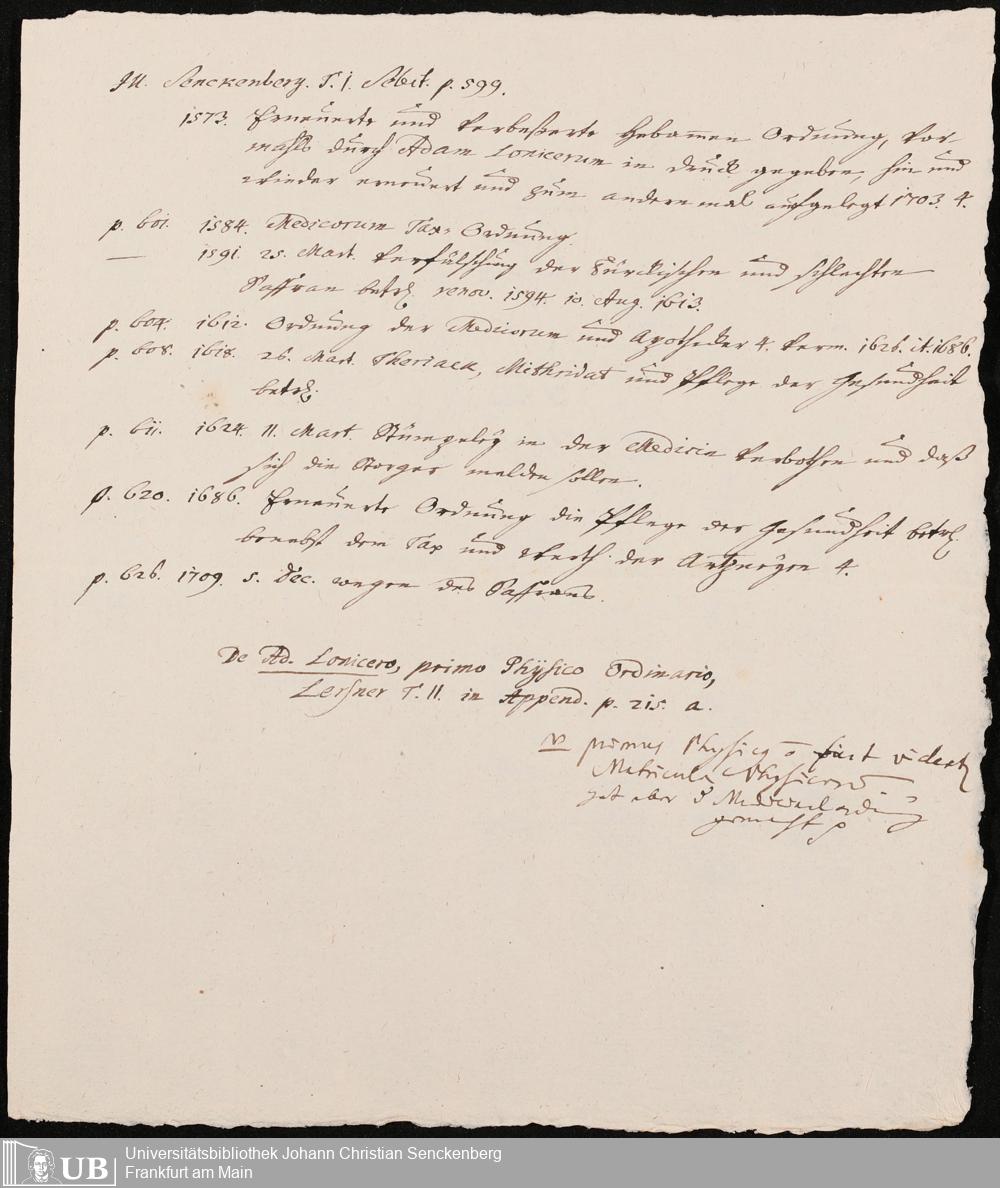 In Senckenberg. T. I. Select. p. 599.
1573. Erneuerte und Verbeßerte Hebammen Ordnung, vor-
mahls durch Adam Lonicerum in Druck gegeben, hin und
wieder erneuert und zum andern mal aufgelegt 1703. 4.
p. 601. 1584. Medicorum Tax-Ordnung.
— 1591. 25. Mart. Verfälschung der Türckischen und schlechten
Saffran betrf. renov. 1594. 10. Aug. 1613.
p. 604. 1612. Ordnung der Medicorum und Apothecker 4. verm. 1626. it. 1686.
p. 608. 1618. 26. Mart. Theriack, Mithridat und Pflege der Gesundheit
betrf.
p. 611. 1624. 11. Mart. Stümpeley in der Medicin verbothen und daß
sich die Storger melden sollen.
p. 620. 1686. Erneuerte Ordnung die Pflege der Gesundheit betrf.
benebst dem Tax und Werth der Artzneyen 4.
p. 626. 1709. 5. Dec. wegen des Saffrans.
De Ad. Lonicero, primo Physico Ordinario,
Lersner T. II. in Append. p. 215. a.
primus Physicus fuit
Matricula Physicorum
hat aber
gemacht
Universitätsbibliothek Johann Christian Senckenberg
UB Frankfurt am Main